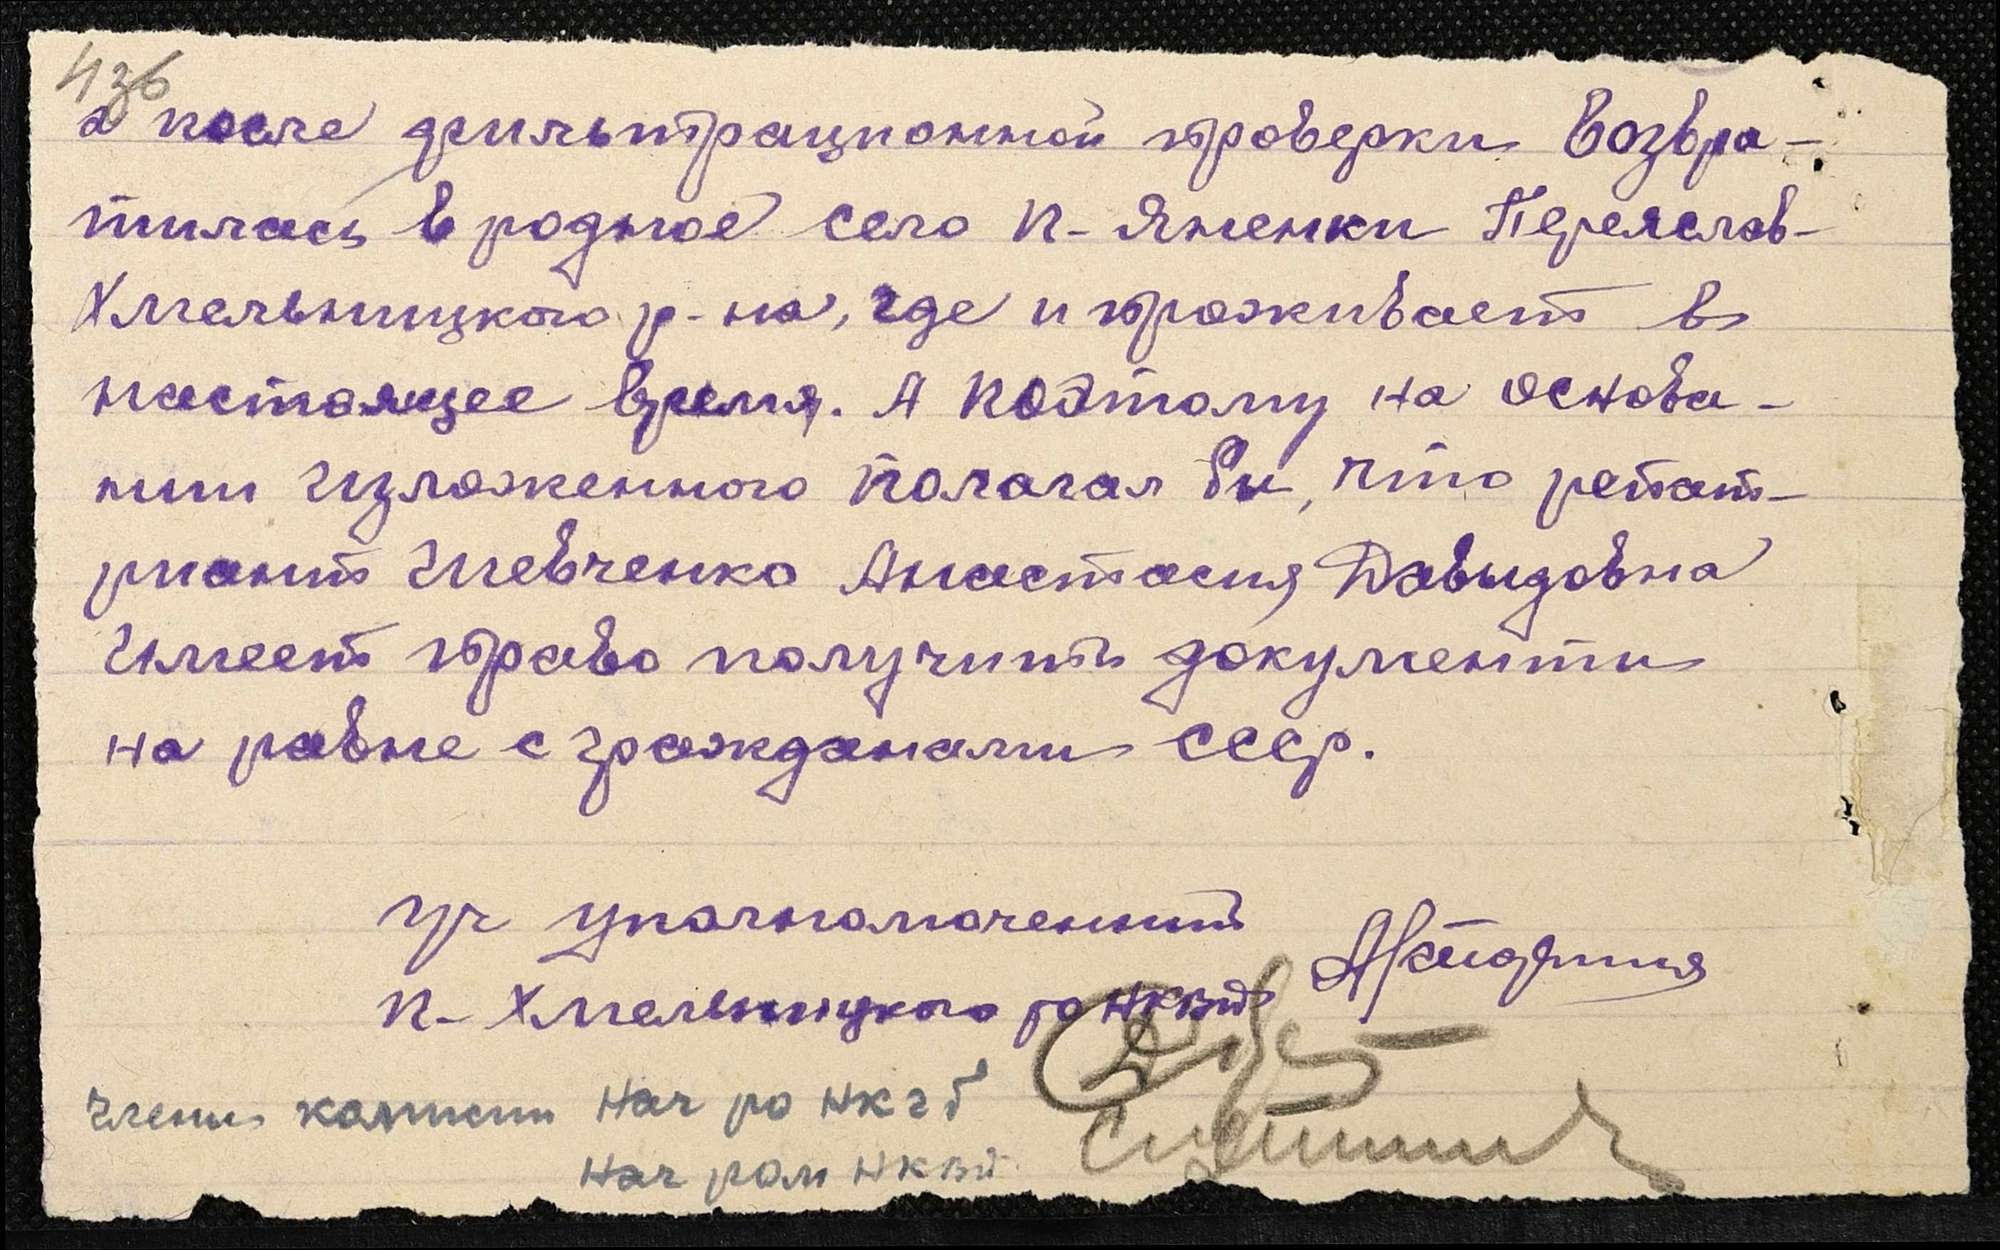 436
а после фильтрационной проверки возвра-
тилась в родное село П-Яненки Переяслав-
Хмельницкого р-на, где и проживает в
настоящее время. А поэтому на основа-
нии изложенного полагал бы, что репат-
риант Шевченко Анастасия Давыдовна
имеет право получить документы
на равне с гражданами СССР.
Уч уполномоченный
П-Хмельницкого РО НКВД
Члены комиссии Нач РО НКГБ
Нач РОМ НКВД